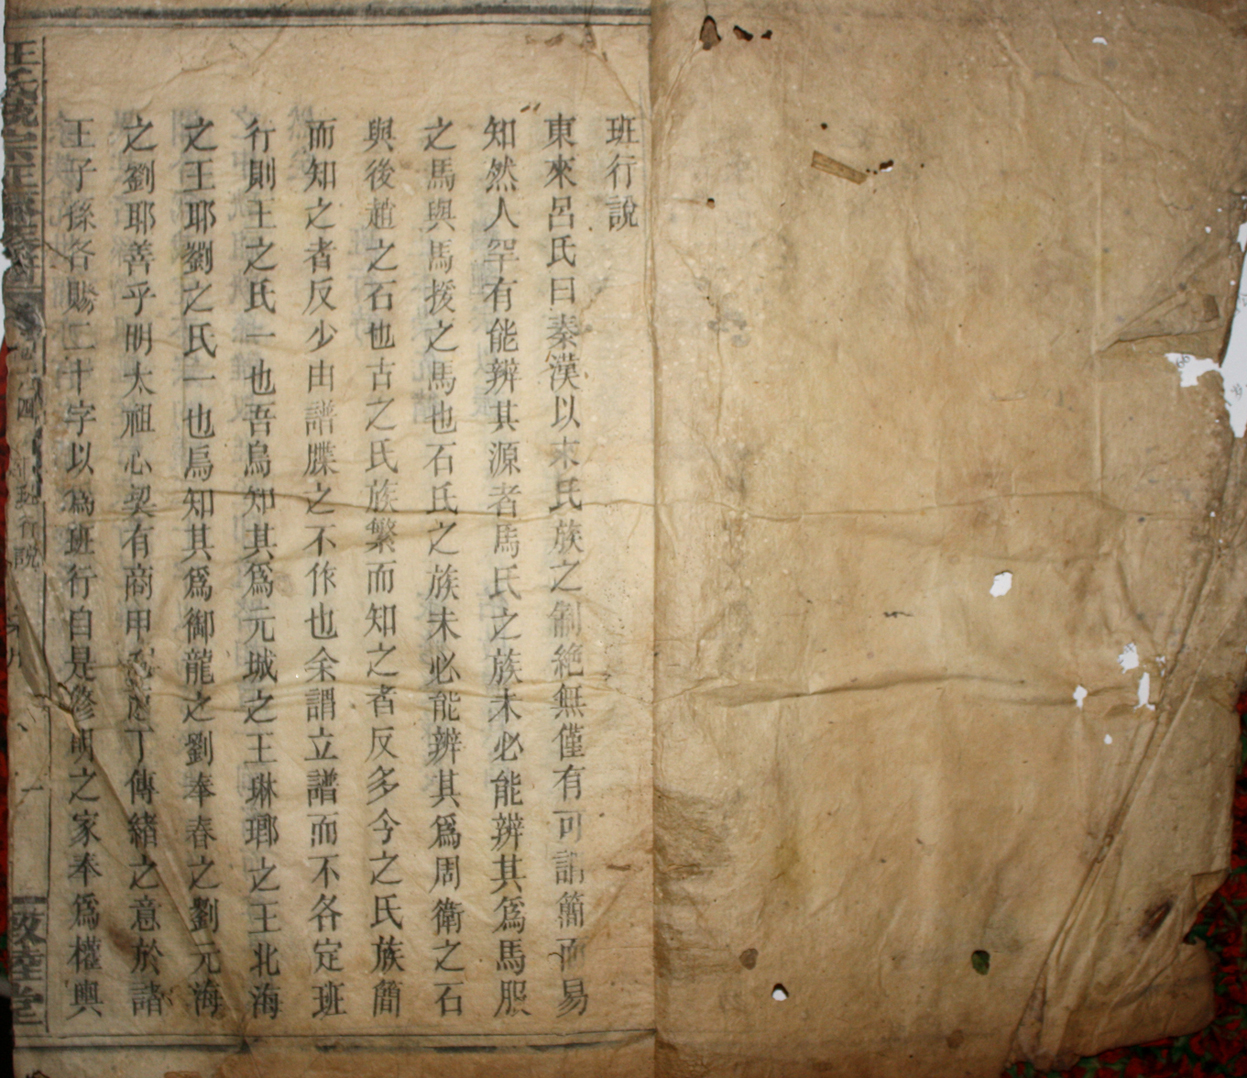 班行說
東來呂氏曰秦漢以來氏族之制絶無僅有可謂簡而易
知然人罕有能辨其源者馬氏之族未必能辨其爲馬服
之馬與馬援之馬也石氏之族未必能辨其爲周衛之石
與後趙之石也古之氏族繁而知之者反多今之氏族簡
而知之者反少由譜牒之不作也余謂立譜而不各定班
行則王之氏一也吾烏知其爲元城之王琳瑯之王北海
之王耶劉之氏一也烏知其爲御龍之劉奉春之劉元海
之劉耶善乎明太祖心契有商甲乙丙丁傳緒之意於諸
王子孫各賜二十字以爲班行自是修明之家奉爲權輿
四 班行說 一
敦睦堂